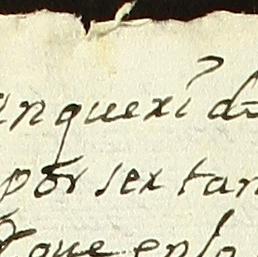 anquexi do
por sex tan
que enlo